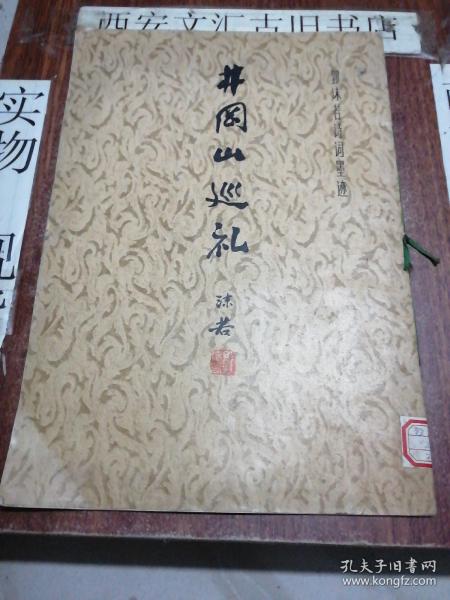 西安文汇古旧书店
实物
郭沫若诗词墨迹
井冈山巡礼
沫若
孔夫子旧书网
www.kongfz.com